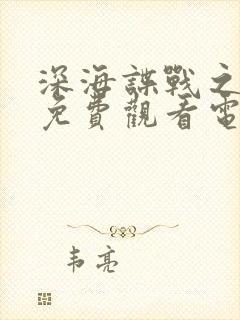 深海諜戰之
免費觀看電
韦亮